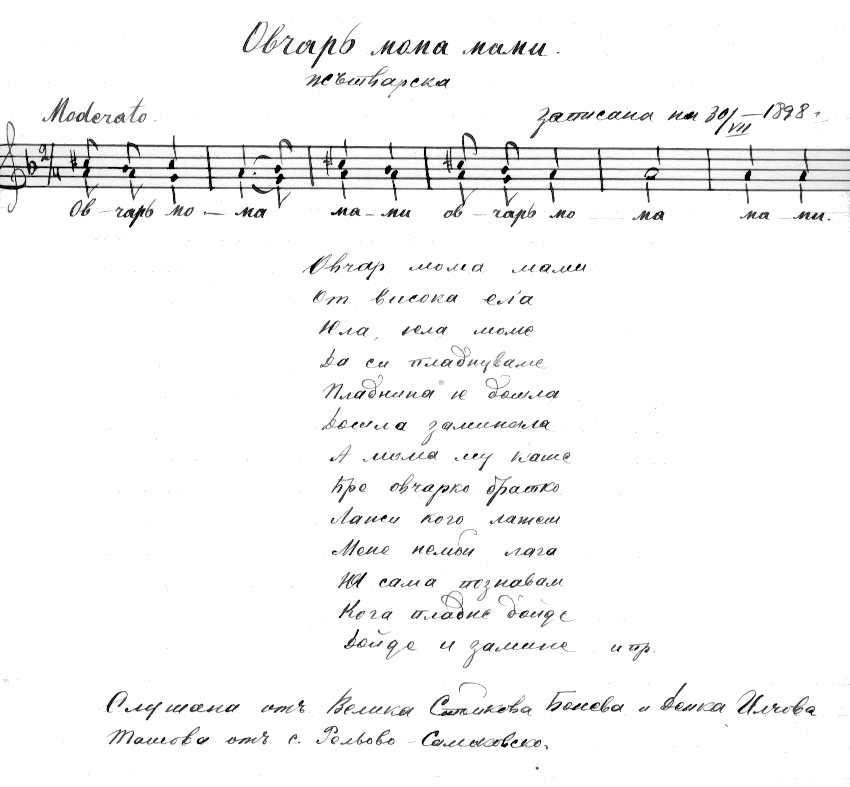 Овчарь мома мами.
жътварска
Moderato.
записана на 30/VII – 1898 г.
2/4
Ов – чарь мо – ма ма – ми ов – чарь мо ма ма – ми.
Овчар мома мами
От висока ела
Юла, юла моме
Да си пладнуваме
Пладнина ю дошла
Дошла заминала
А мома му каже
Бре овчарко братко
Лажи кого лажеш
Мене немой лага
Ю сама познавам
Кога пладне дойде
Дойде и замине и пр.
Слушана отъ Велика Бонева и Денка Илчова
Ташова отъ с. Рельово – Самоковско.